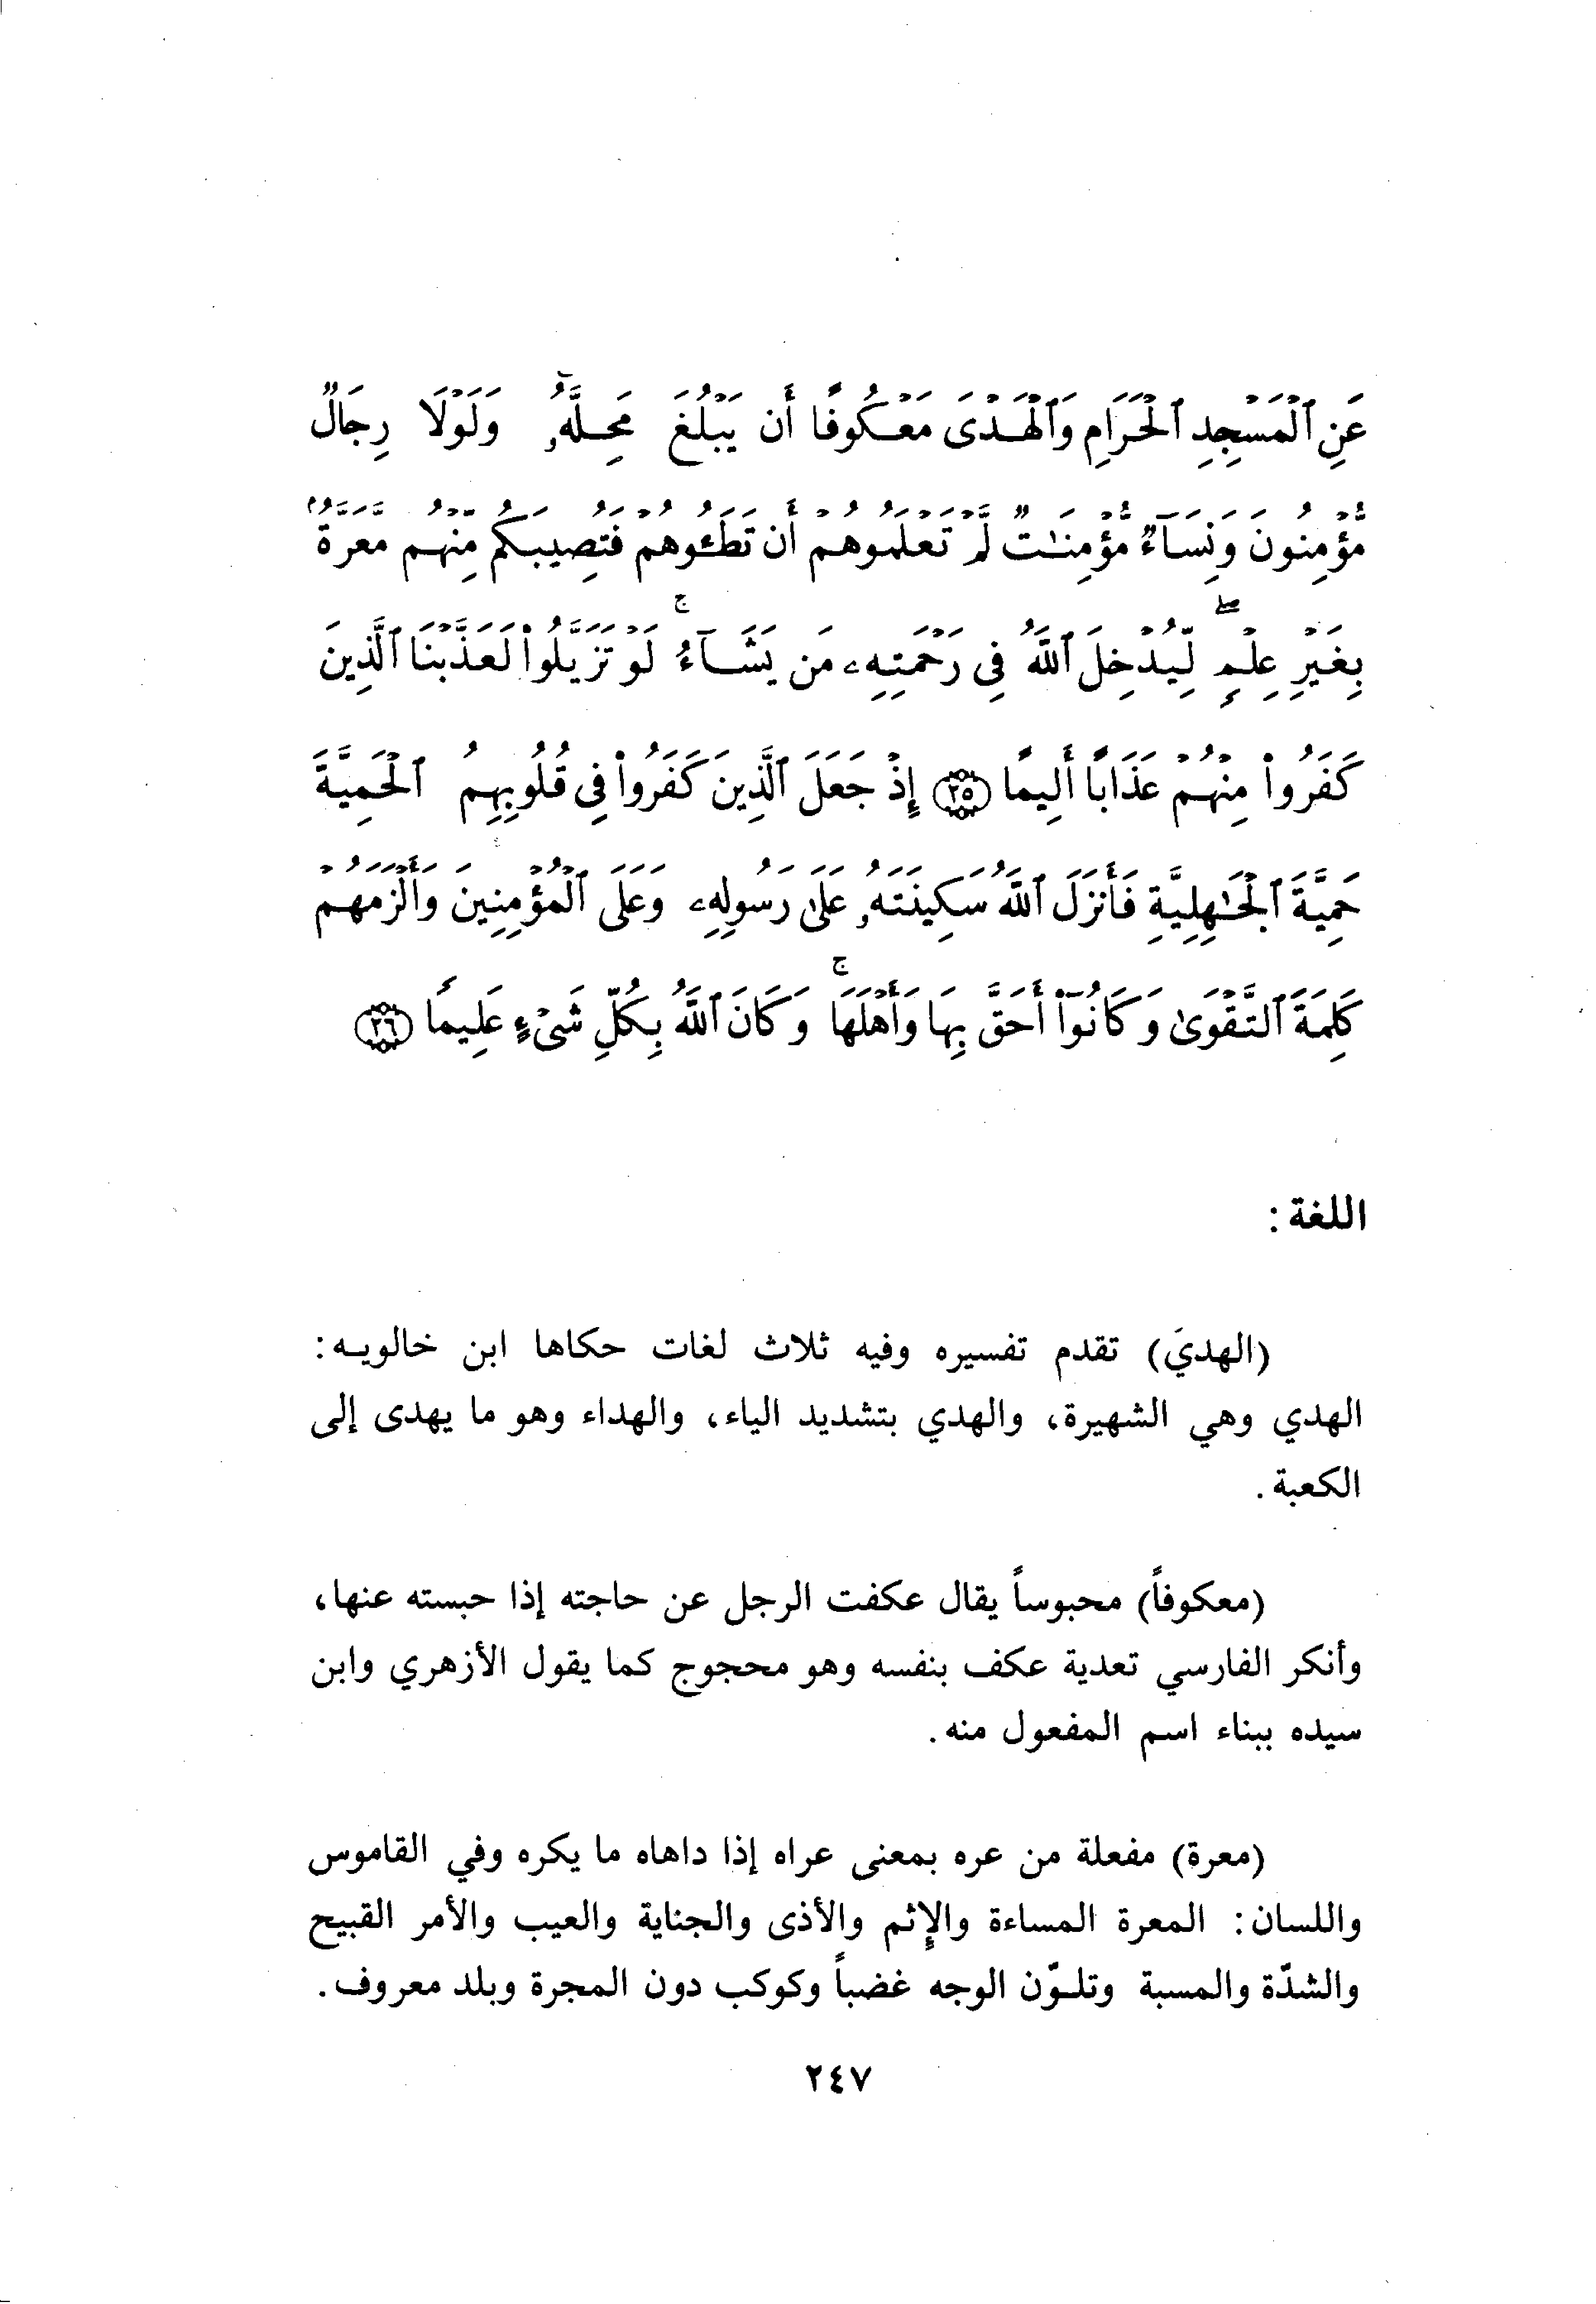 عَنِ ٱلْمَسْجِدِ ٱلْحَرَامِ وَٱلْهَدْىَ مَعْكُوفًا أَن يَبْلُغَ مَحِلَّهُۥ وَلَوْلَا رِجَالٌ
مُّؤْمِنُونَ وَنِسَآءٌ مُّؤْمِنَـٰتٌ لَّمْ تَعْلَمُوهُمْ أَن تَطَـُٔوهُمْ فَتُصِيبَكُم مِّنْهُم مَّعَرَّةٌۢ
بِغَيْرِ عِلْمٍۢ ۖ لِّيُدْخِلَ ٱللَّهُ فِى رَحْمَتِهِۦ مَن يَشَآءُ ۚ لَوْ تَزَيَّلُوا۟ لَعَذَّبْنَا ٱلَّذِينَ
كَفَرُوا۟ مِنْهُمْ عَذَابًا أَلِيمًا ﴿٢٥﴾ إِذْ جَعَلَ ٱلَّذِينَ كَفَرُوا۟ فِى قُلُوبِهِمُ ٱلْحَمِيَّةَ
حَمِيَّةَ ٱلْجَـٰهِلِيَّةِ فَأَنزَلَ ٱللَّهُ سَكِينَتَهُۥ عَلَىٰ رَسُولِهِۦ وَعَلَى ٱلْمُؤْمِنِينَ وَأَلْزَمَهُمْ
كَلِمَةَ ٱلتَّقْوَىٰ وَكَانُوٓا۟ أَحَقَّ بِهَا وَأَهْلَهَا ۚ وَكَانَ ٱللَّهُ بِكُلِّ شَىْءٍ عَلِيمًا ﴿٢٦﴾
اللغة :
(الهديَ) تقدم تفسيره وفيه ثلاث لغات حكاها ابن خالويـه :
الهدي وهي الشهيرة، والهدي بتشديد الياء، والهداء وهو ما يهدى إلى
الكعبة .
(معكوفاً) محبوساً يقال عكفت الرجل عن حاجته إذا حبسته عنها،
وأنكر الفارسي تعدية عكف بنفسه وهو محجوج كما يقول الأزهري وابن
سيده ببناء اسم المفعول منه .
(معرة) مفعلة من عره بمعنى عراه إذا داهاه ما يكره وفي القاموس
واللسان : المعرة المساءة والإثم والأذى والجناية والعيب والأمر القبيح
والشدّة والمسبة وتلـوّن الوجه غضباً وكوكب دون المجرة وبلد معروف .
٢٤٧